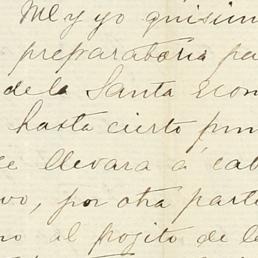 y yo quisim
preparatoria pa
de la Santa Econ
hasta cierto pun
e llevara á cab
vo, por otra parte
no al pojito de le